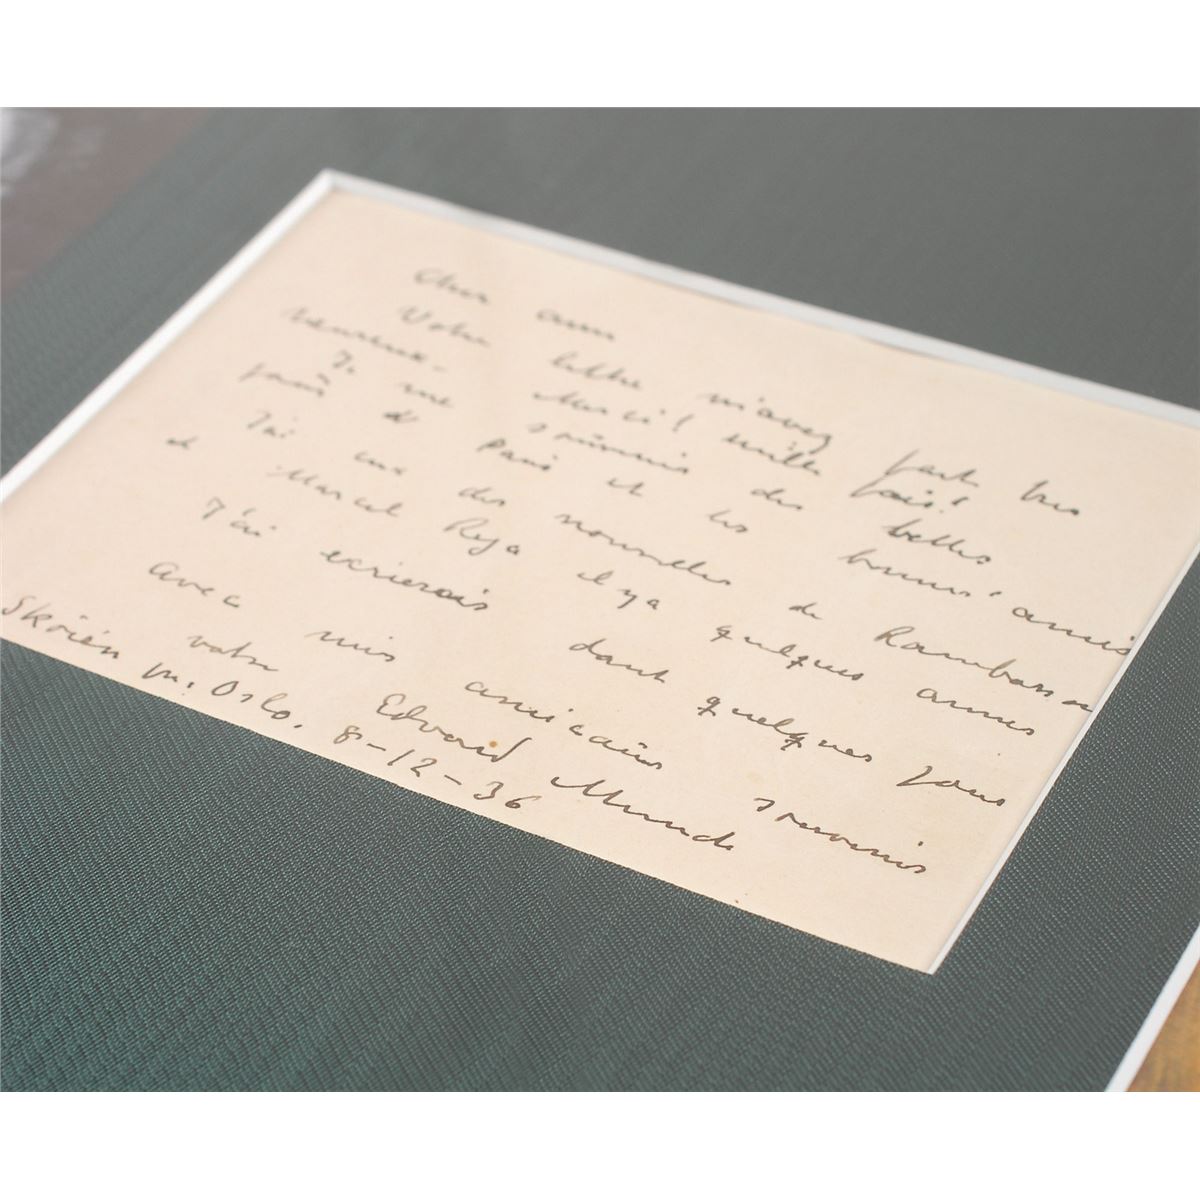 Cher ami
Votre lettre m'avez fait tres
heureux – Merci! mille fois!
Je me souvenis des belles
jours de Paris et les bonnes amis
J'ai eu des nouvelles de Rambosson
et Marcel Reja il ya quelques annees
J'ai ecrierais dant quelques jours
avec mis amicaüs souvenis
votre Edvard Munch
Skøien pr. Oslo. 8–12–36